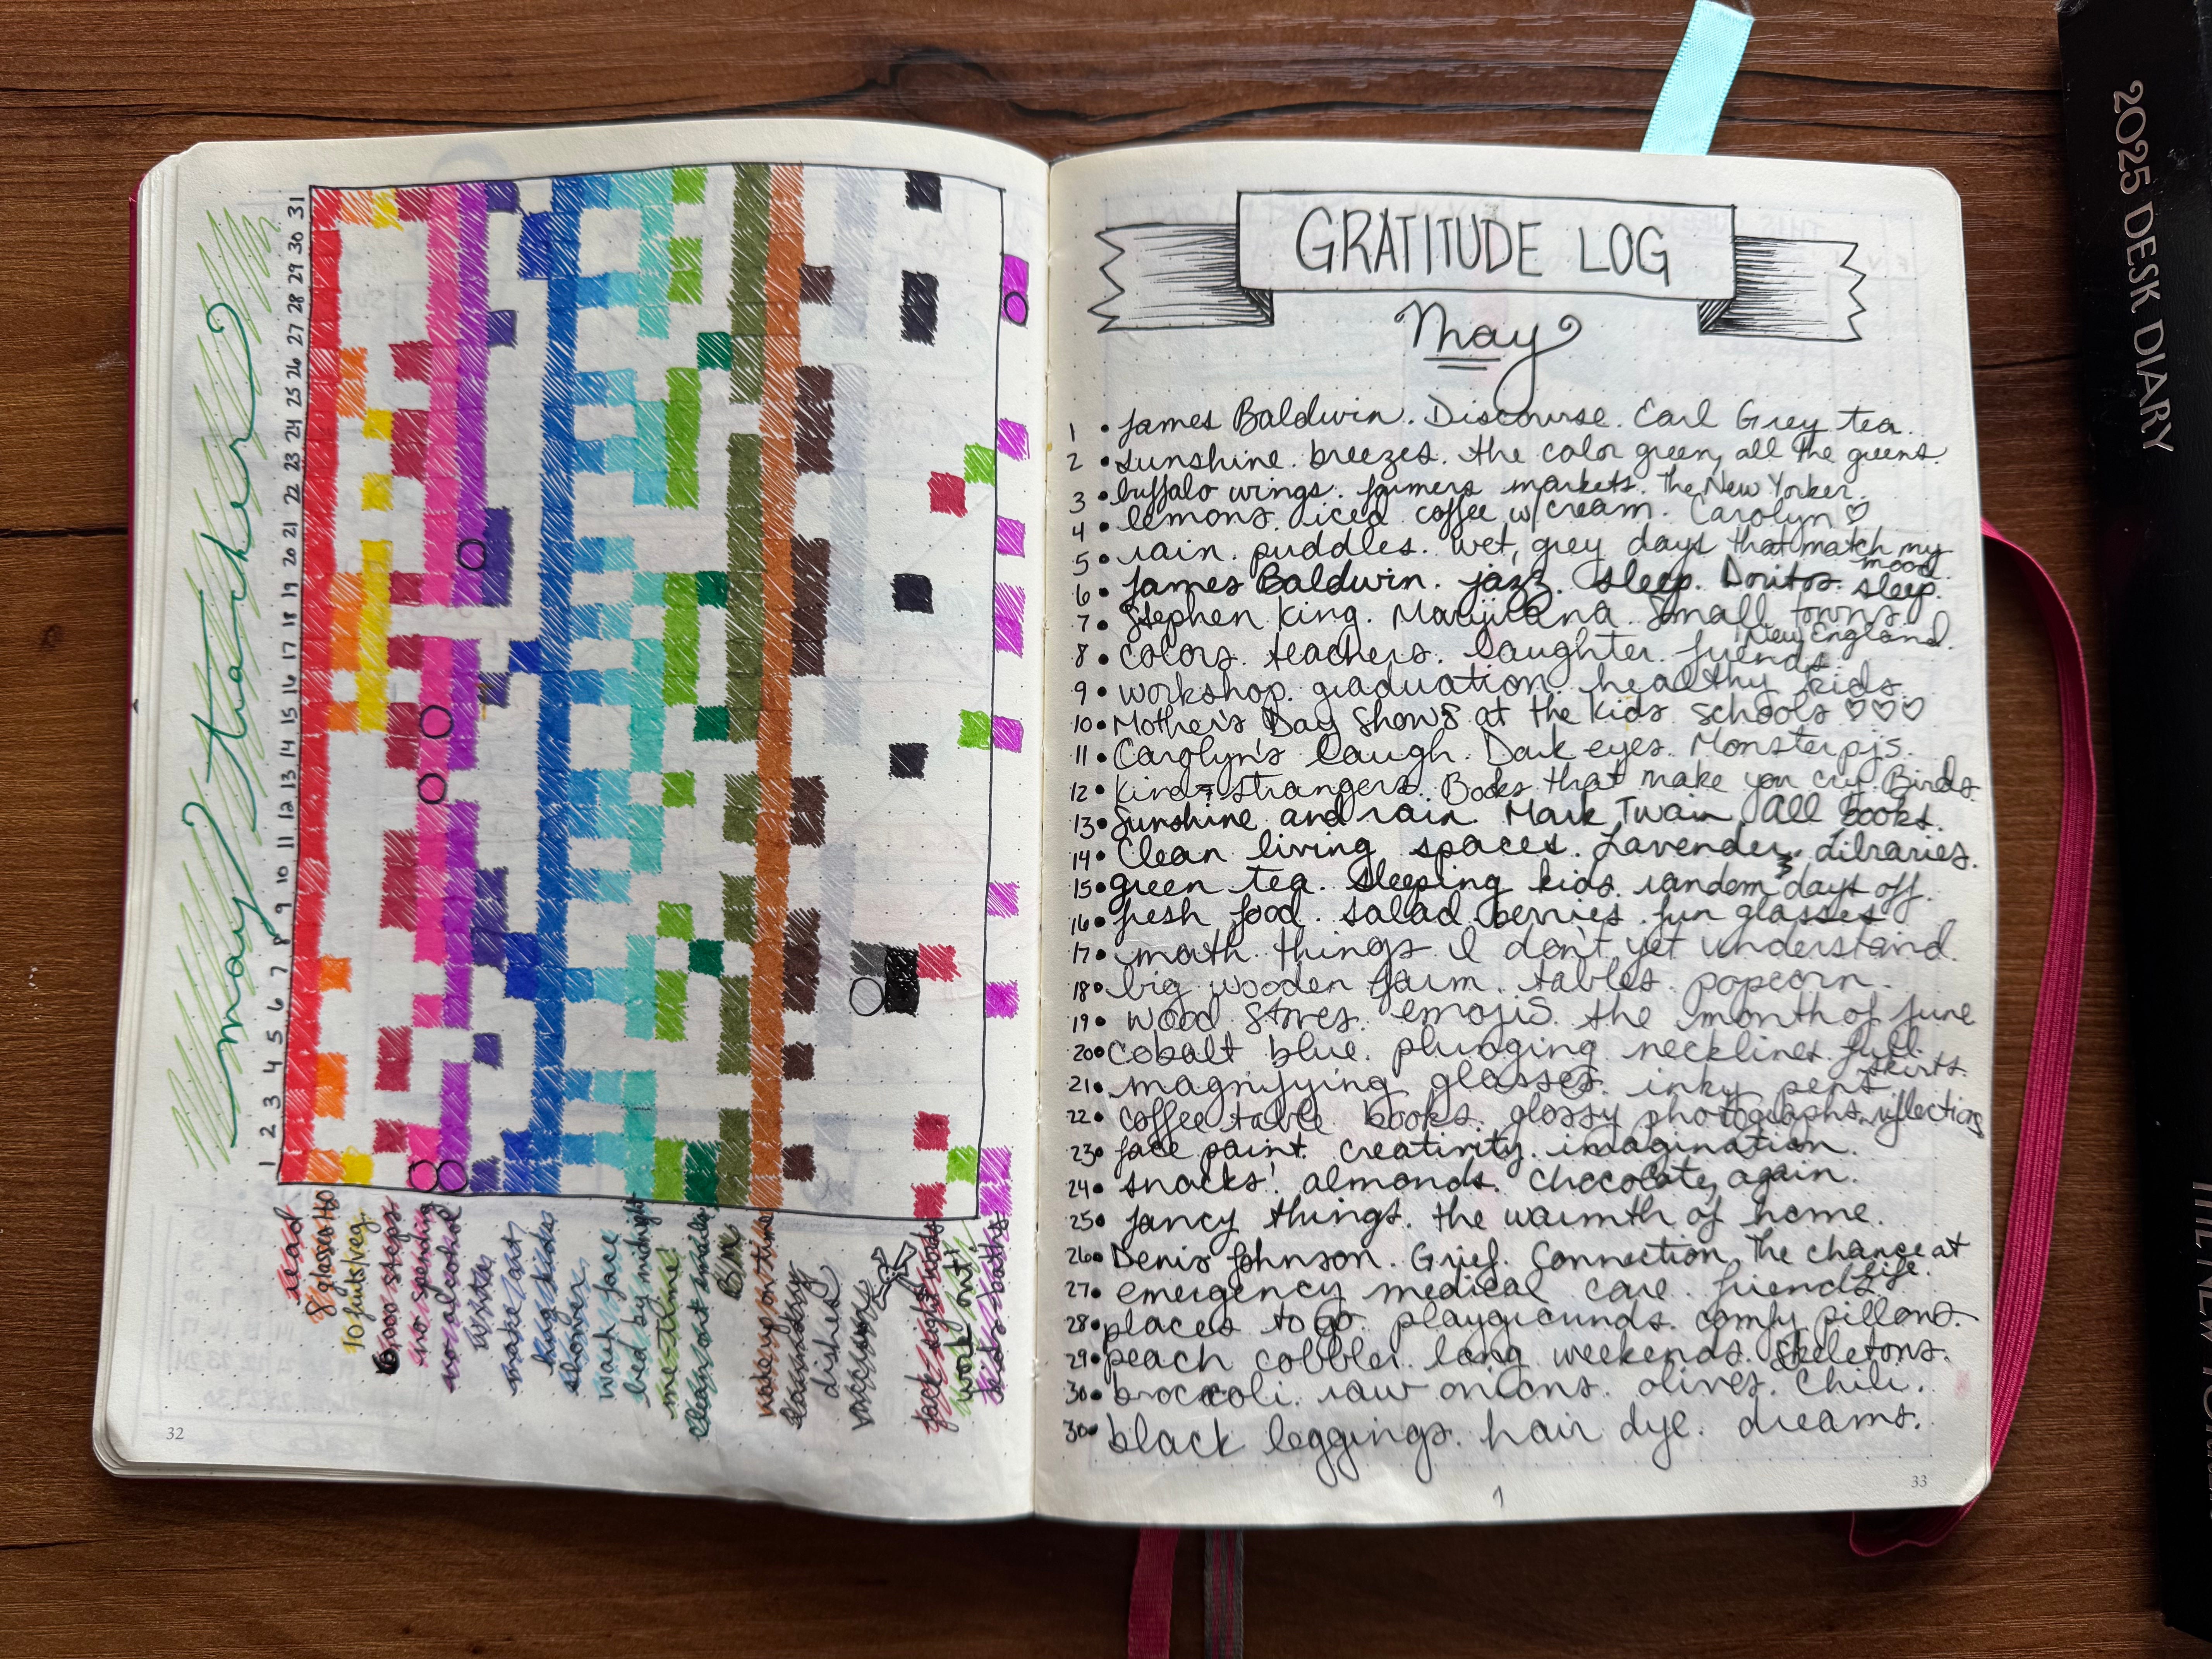 may tracker
31
30
29
28
27
26
25
24
23
22
21
20
19
18
17
16
15
14
13
12
11
10
9
8
7
6
5
4
3
2
1
read
8 glasses H2O
10 fruits/veg.
6,000 steps
no spending
no alcohol
write
make art
hang kiddos
shower
wash face
bed by midnight
me-time!
clean out emails
BM
wake up on time
laundry
dishes
vacuums
work out!
kids-baths
32
GRATITUDE LOG
May
1 • James Baldwin. Discourse. Earl Grey tea.
2 • sunshine. breezes. the color green, all the greens.
3 • buffalo wings. farmers markets. The New Yorker.
4 • lemons. iced coffee w/cream. Carolyn ♡
5 • rain. puddles. wet, grey days that match my mood.
6 • James Baldwin. jazz. sleep. Doritos. sleep.
7 • Stephen King. Marijuana. Small towns. New England.
8 • colors. teachers. laughter. friends.
9 • workshop. graduation. healthy kids.
10 • Mother's Day Shows at the kids schools ♡♡♡
11 • Carolyn's laugh. Dark eyes. Monster pjs.
12 • Kind strangers. Books that make you cry. Birds.
13 • Sunshine and rain. Mark Twain. All books.
14 • Clean living spaces. Lavender. Libraries.
15 • green tea. Sleeping kids. random days off.
16 • fresh food. salad. berries. fun glasses
17 • math. things I don't yet understand.
18 • big wooden farm tables. popcorn.
19 • wood stoves. emojis. the month of June
20 • cobalt blue. plunging necklines. full skirts.
21 • magnifying glasses. inky pens.
22 • coffee table books. glossy photographs. reflections
23 • face paint. creativity. imagination.
24 • snacks! almonds. chocolate, again.
25 • fancy things. the warmth of home.
26 • Denis Johnson. Grief. Connection. The chance at life.
27 • emergency medical care. friends.
28 • places to go. playgrounds. comfy pillows.
29 • peach cobbler. long weekends. skeletons.
30 • broccoli. raw onions. olives. chili.
30 • black leggings. hair dye. dreams.
33
2025 DESK DIARY
THE NEW YORKER